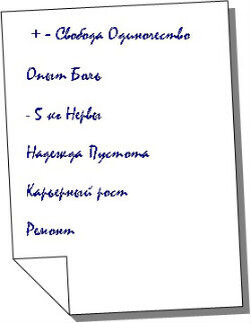 + - Свобода Одиночество
Опыт Боль
- 5 кг Нервы
Надежда Пустота
Карьерный рост
Ремонт